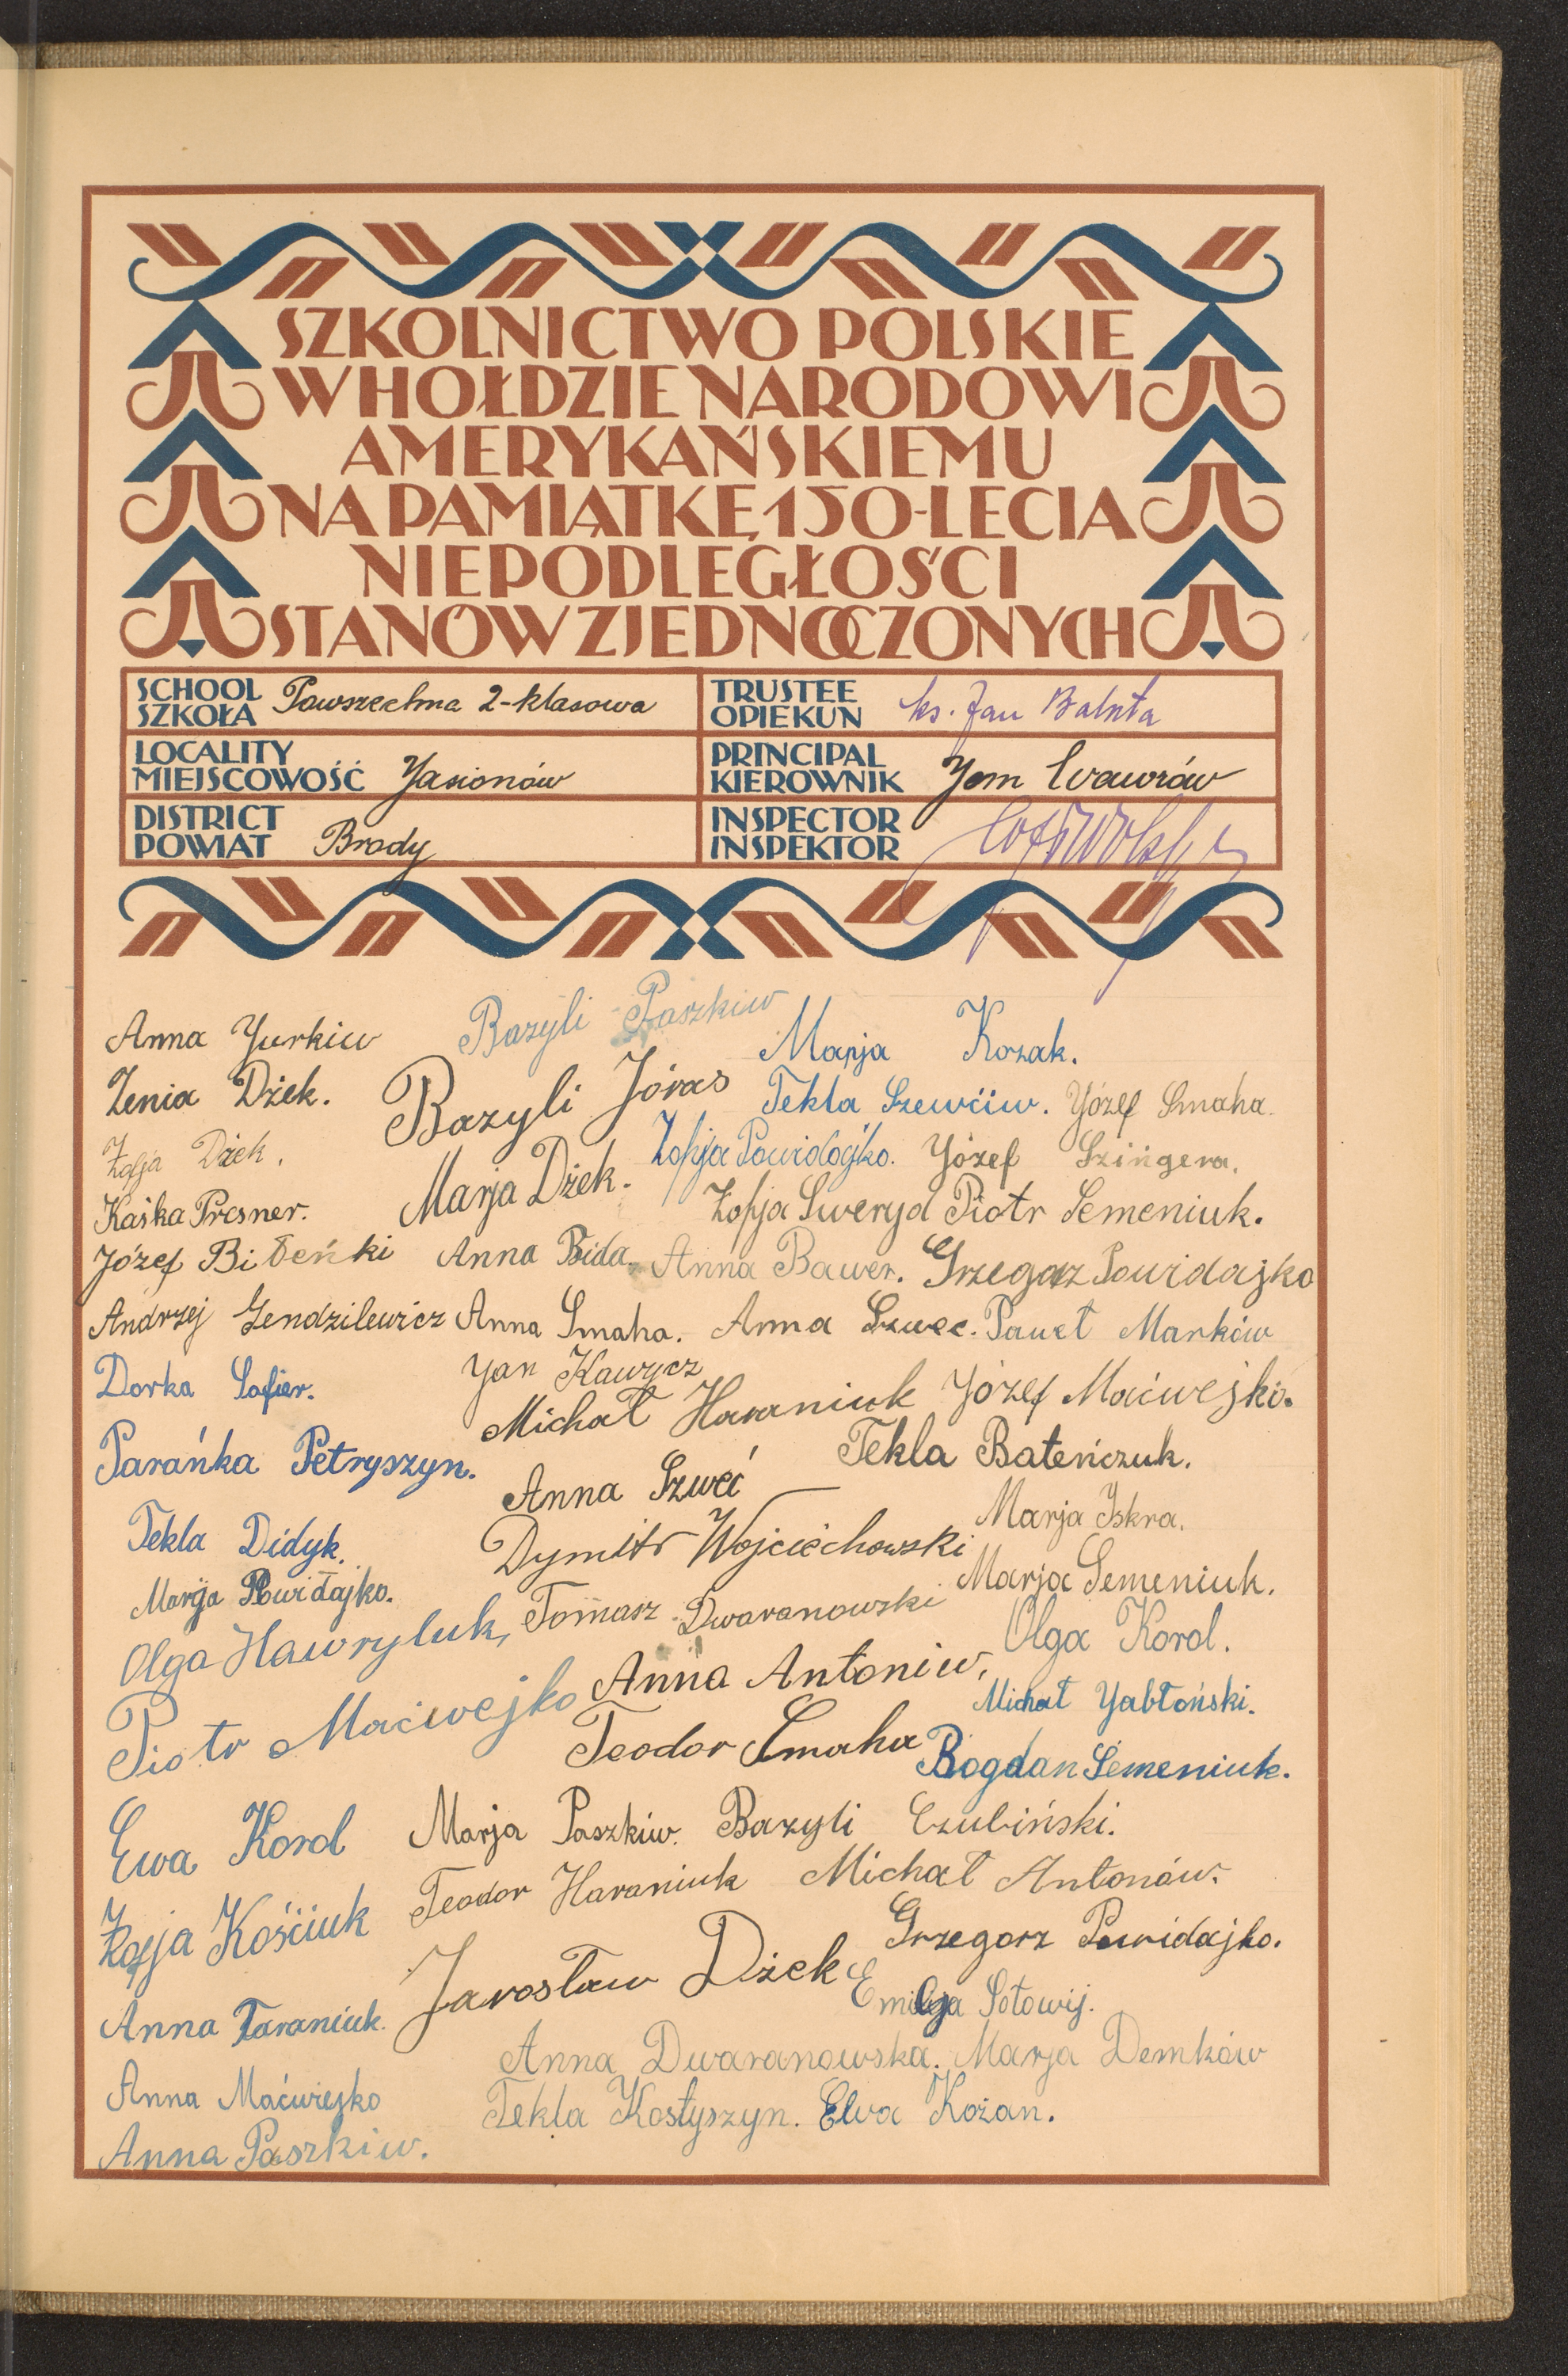 SZKOLNICTWO POLSKIE
W HOŁDZIE NARODOWI
AMERYKAŃSKIEMU
NA PAMIĄTKĘ 150-LECIA
NIEPODLEGŁOŚCI
STANÓW ZJEDNOCZONYCH
SCHOOL
SZKOŁA Powszechna 2-klasowa
TRUSTEE
OPIEKUN ks. Jan Bałuta
LOCALITY
MIEJSCOWOŚĆ Jasionów
PRINCIPAL
KIEROWNIK Jan Wawrów
DISTRICT
POWIAT Brody
INSPECTOR
INSPEKTOR
Anna Yurkiw Bazyli Paszkiw Marja Kozak.
Zenia Dżek. Bazyli Jóras Tekla Szewciw. Józef Smaha.
Zofja Dżek. Marja Dżek. Zofja Powidajko. Józef Szingera.
Kaśka Presner. Zofja Sweryd Piotr Semeniuk.
Józef Biteńki Anna Bida. Anna Bawer. Grzegorz Powidajko
Andrzej Gendzilewicz Anna Smaha. Anna Szwec. Paweł Marków
Dorka Safier. Jan Kawycz
Michał Haraniuk Józef Maćwejko.
Parańka Petryszyn. Anna Szweć Tekla Bateńczuk.
Tekla Didyk. Dymitr Wojciechowski Marja Iskra.
Marja Powidajko. Tomasz Dwaranowski Marja Semeniuk.
Olga Hawryluk, Anna Antoniw, Olga Korol.
Piotr Maćwejko Teodor Smaha Michał Jabłoński.
Bogdan Semeniuk.
Ewa Korol Marja Paszkiw. Bazyli Czubiński.
Zofja Kościuk Teodor Haraniuk Michał Antonów.
Jarosław Dżek Grzegorz Powidajko.
Anna Taraniuk. Emilja Sołowij.
Anna Dwaranowska. Marja Demków
Anna Maćwiejko Tekla Kostyszyn. Ewa Kożan.
Anna Paszkiw.